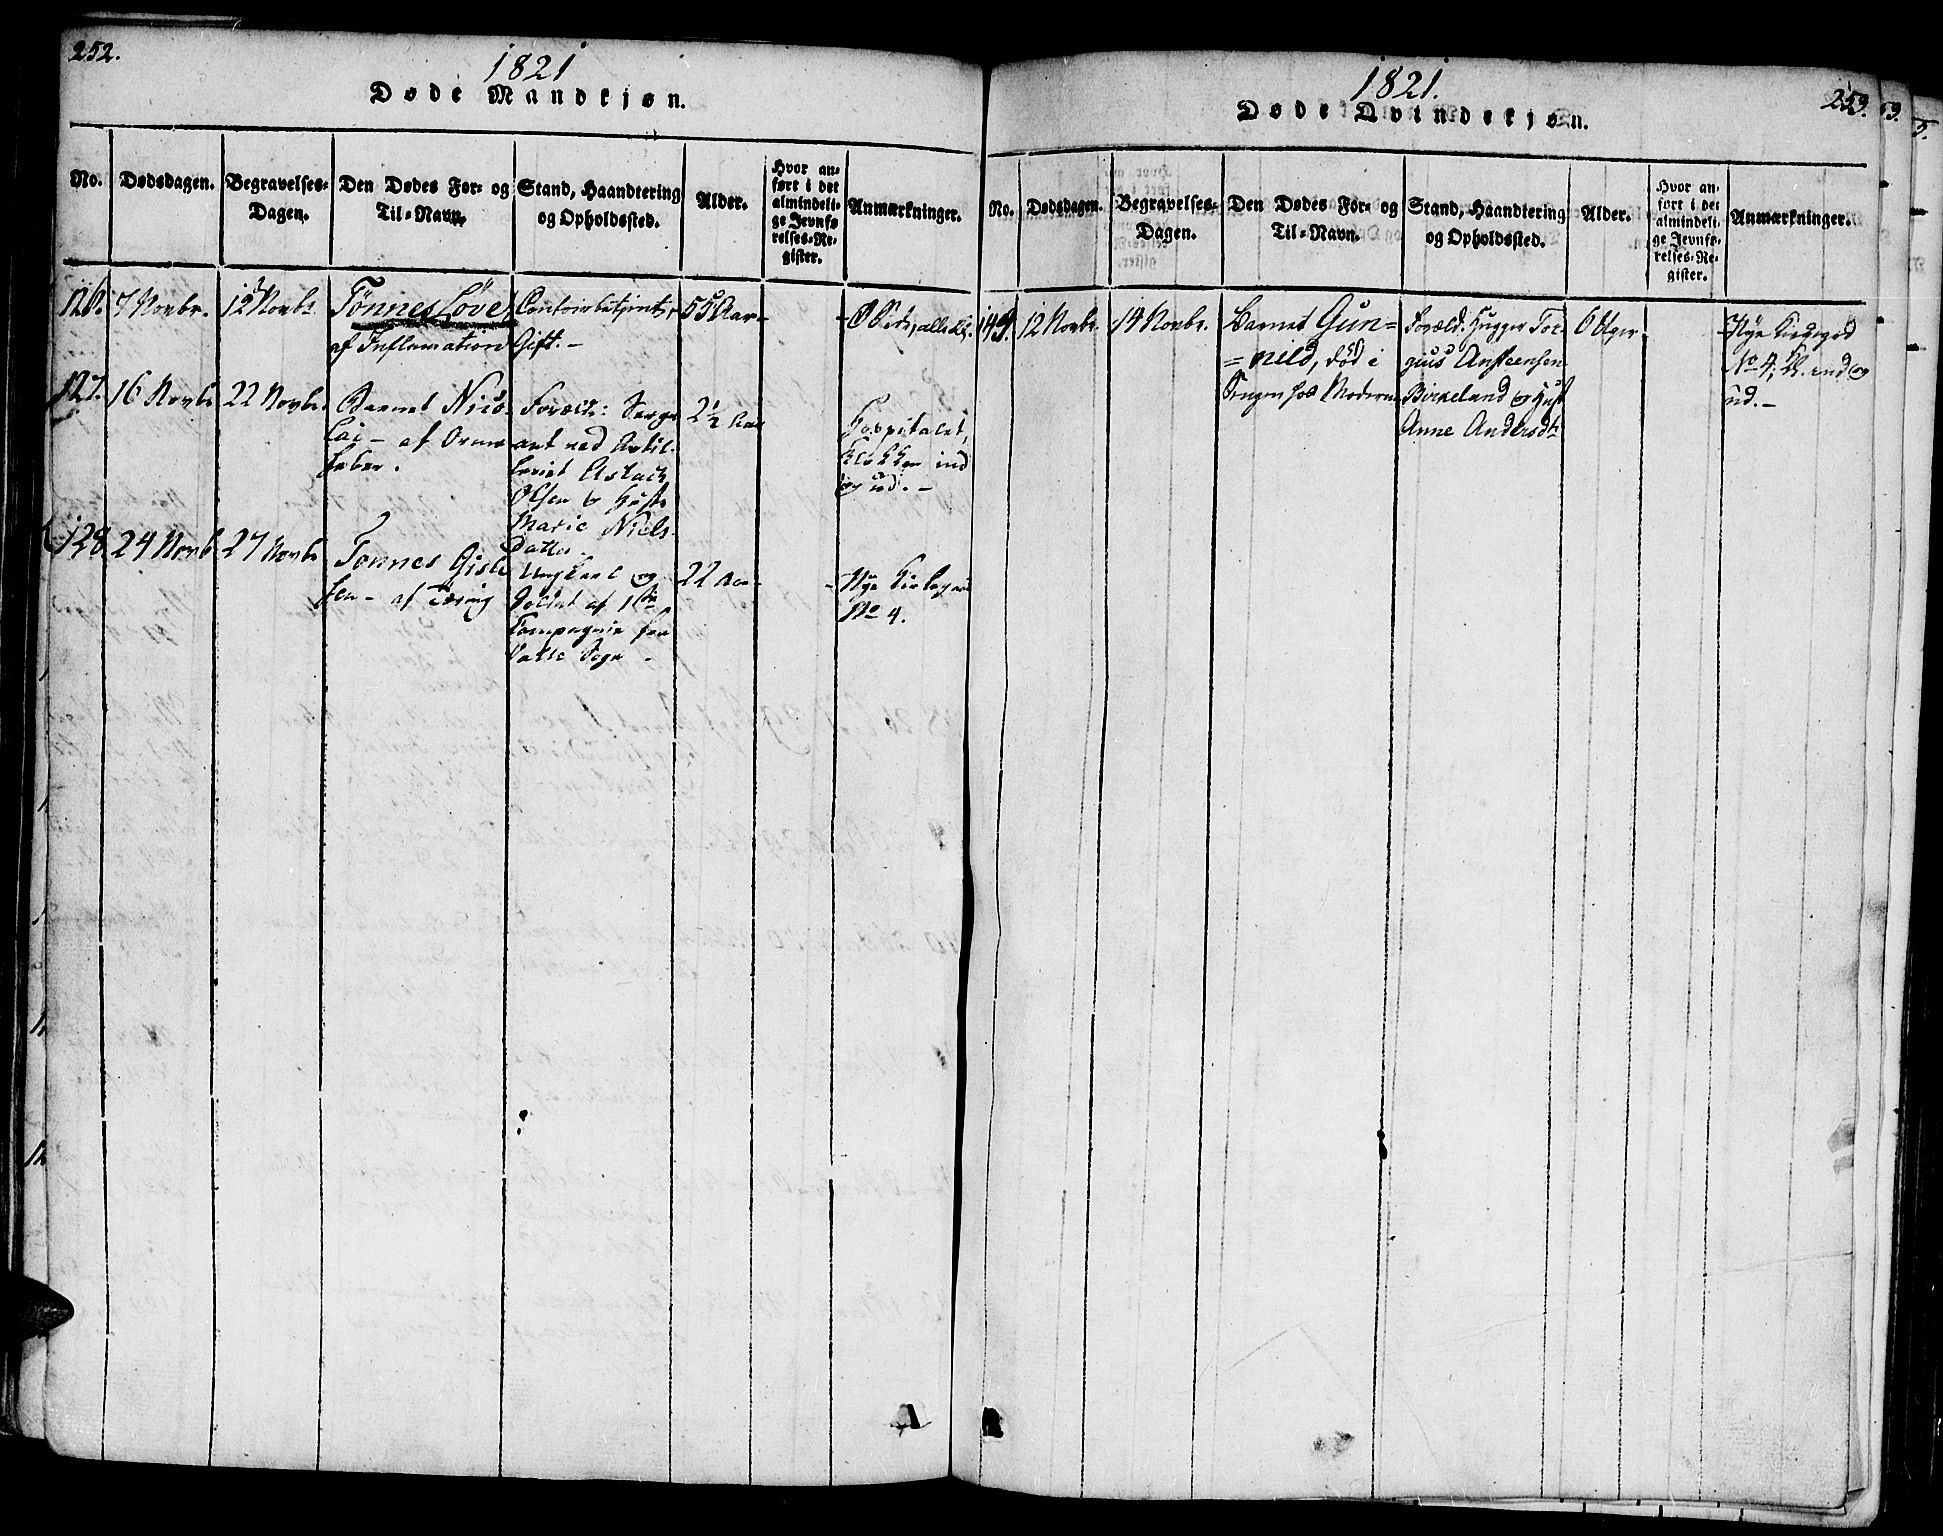 252.
1821
Døde Mandkjøn.
No. Dødsdagen. Begravelses-Dagen. Den Dødes For- og Til-Navn. Stand, Haandtering og Opholdssted. Alder. Hvor anført i det almindelige Jevnførelses-Register. Anmærkninger.
126. 7 Novbr. 12 Novbr
Tønnes Løve
af Inflamation
Gift. -
55 Aar -
127. 16 Novbr 22 Novbr.
Barnet Nico-
lai - af Orme
feber.
Foræld: Serge
ant ved Artil-
leriet Aslack
Olsen & Hust
Marie Niels
Datter.
2½ Aar
Hospitalet,
Klokken ind
og ud. -
128 24 Novb 27 Novbr
Tønnes Gisle
sen - af Tæring
Ungkarl og
Soldat af 1ste
Compagnie fra
Valle Sogn -
22 Aar -
Nye Kirkegaard
No 4.
1821.
253.
Døde Qvindekjøn.
No. Dødsdagen. Begravelses-Dagen. Den Dødes For- og Til-Navn. Stand, Haandtering og Opholdssted. Alder. Hvor anført i det almindelige Jevnførelses-Register. Anmærkninger.
149. 12 Novbr. 14 Novbr.
Barnet Gun=
=nild, død i
Sengen hos Moderen
Foræld. Hugger Tor-
gius Ansteensen
Birkeland og Hust
Anne Andersdtr
6 Uger -
Nye Kirkegrd
No 4; Kl. ind og
ud. -